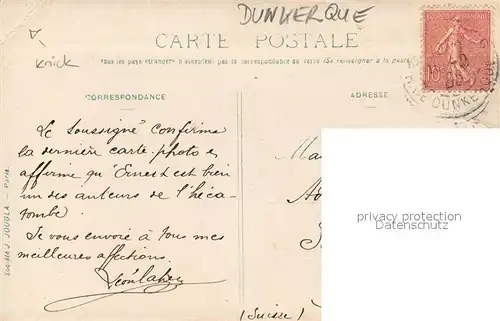 DUNKERQUE
CARTE POSTALE
knick
Tous les pays étrangers n'acceptent pas la correspondance au verso (Se renseigner à la poste)
CORRESPONDANCE
ADRESSE
10
DUNKERQUE
Le soussigné confirme
la dernière carte-photo &
affirme qu'Ernest est bien
un des auteurs de l'héca-
tombe.
Je vous envoie à tous mes
meilleures affections.
(Suisse)
Société J. JOUGLA. — Paris.
privacy protection
Datenschutz